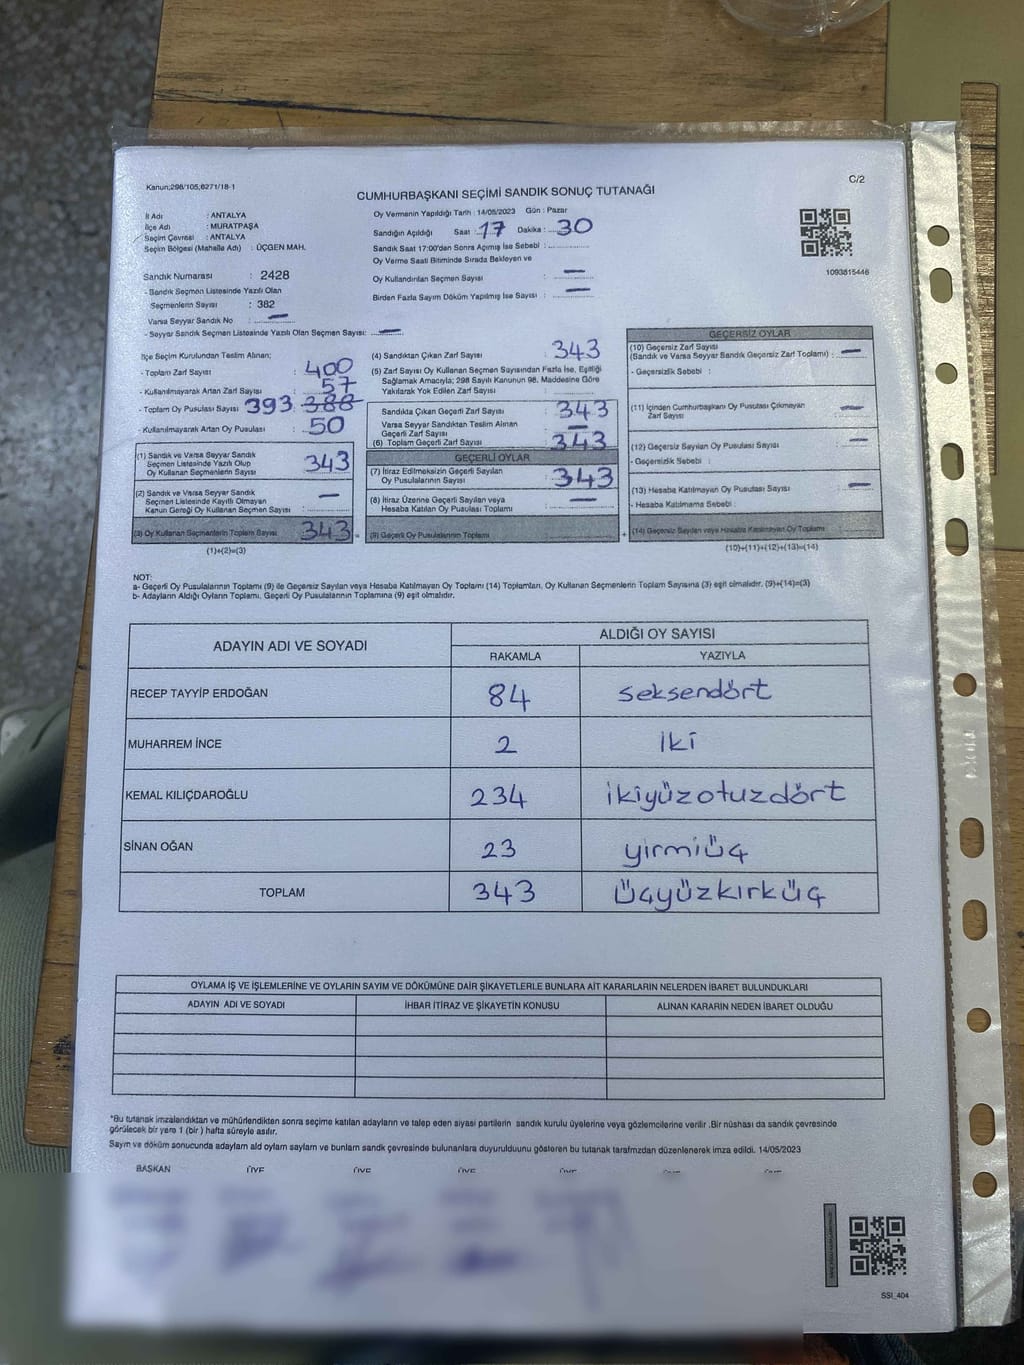 Kanun;298/105,6271/18-1
C/2
CUMHURBAŞKANI SEÇİMİ SANDIK SONUÇ TUTANAĞI
İl Adı : ANTALYA
İlçe Adı : MURATPAŞA
Seçim Çevresi : ANTALYA
Seçim Bölgesi (Mahalle Adı) : ÜÇGEN MAH.
Oy Vermenin Yapıldığı Tarih : 14/05/2023 Gün : Pazar
Sandığın Açıldığı Saat : 17 Dakika : 30
Sandık Saat 17:00'dan Sonra Açımış İse Sebebi :
Oy Verme Saati Bitiminde Sırada Bekleyen ve
Oy Kullandırılan Seçmen Sayısı : —
Birden Fazla Sayım Döküm Yapılmış İse Sayısı : —
1093815446
Sandık Numarası : 2428
- Sandık Seçmen Listesinde Yazılı Olan
Seçmenlerin Sayısı : 382
Varsa Seyyar Sandık No : —
- Seyyar Sandık Seçmen Listesinde Yazılı Olan Seçmen Sayısı: —
İlçe Seçim Kurulundan Teslim Alınan;
- Toplam Zarf Sayısı : 400
- Kullanılmayarak Artan Zarf Sayısı : 57
- Toplam Oy Pusulası Sayısı 393 388
- Kullanılmayarak Artan Oy Pusulası : 50
(1) Sandık ve Varsa Seyyar Sandık
Seçmen Listesinde Yazılı Olup
Oy Kullanan Seçmenlerin Sayısı : 343
(2) Sandık ve Varsa Seyyar Sandık
Seçmen Listesinde Kayıtlı Olmayan
Kanun Gereği Oy Kullanan Seçmen Sayısı : —
(3) Oy Kullanan Seçmenlerin Toplam Sayısı : 343 =
(1)+(2)=(3)
(4) Sandıktan Çıkan Zarf Sayısı : 343
(5) Zarf Sayısı Oy Kullanan Seçmen Sayısından Fazla İse, Eşitliği
Sağlamak Amacıyla; 298 Sayılı Kanunun 98. Maddesine Göre
Yakılarak Yok Edilen Zarf Sayısı :
Sandıkta Çıkan Geçerli Zarf Sayısı : 343
Varsa Seyyar Sandıktan Teslim Alınan
Geçerli Zarf Sayısı : —
(6) Toplam Geçerli Zarf Sayısı : 343
GEÇERLİ OYLAR
(7) İtiraz Edilmeksizin Geçerli Sayılan
Oy Pusulalarının Sayısı : 343
(8) İtiraz Üzerine Geçerli Sayılan veya
Hesaba Katılan Oy Pusulası Toplamı : —
(9) Geçerli Oy Pusulalarının Toplamı : +
GEÇERSİZ OYLAR
(10) Geçersiz Zarf Sayısı
(Sandık ve Varsa Seyyar Sandık Geçersiz Zarf Toplamı) : —
- Geçersizlik Sebebi :
(11) İçinden Cumhurbaşkanı Oy Pusulası Çıkmayan
Zarf Sayısı : —
(12) Geçersiz Sayılan Oy Pusulası Sayısı : —
- Geçersizlik Sebebi :
(13) Hesaba Katılmayan Oy Pusulası Sayısı : —
- Hesaba Katılmama Sebebi :
(14) Geçersiz Sayılan veya Hesaba Katılmayan Oy Toplamı :
(10)+(11)+(12)+(13)=(14)
NOT:
a- Geçerli Oy Pusulalarının Toplamı (9) ile Geçersiz Sayılan veya Hesaba Katılmayan Oy Toplamı (14) Toplamları, Oy Kullanan Seçmenlerin Toplam Sayısına (3) eşit olmalıdır. (9)+(14)=(3)
b- Adayların Aldığı Oyların Toplamı, Geçerli Oy Pusulalarının Toplamına (9) eşit olmalıdır.
ADAYIN ADI VE SOYADI
ALDIĞI OY SAYISI
RAKAMLA YAZIYLA
RECEP TAYYİP ERDOĞAN 84 seksendört
MUHARREM İNCE 2 iki
KEMAL KILIÇDAROĞLU 234 ikiyüzotuzdört
SİNAN OĞAN 23 yirmiüç
TOPLAM 343 üçyüzkırküç
OYLAMA İŞ VE İŞLEMLERİNE VE OYLARIN SAYIM VE DÖKÜMÜNE DAİR ŞİKAYETLERLE BUNLARA AİT KARARLARIN NELERDEN İBARET BULUNDUKLARI
ADAYIN ADI VE SOYADI İHBAR İTİRAZ VE ŞİKAYETİN KONUSU ALINAN KARARIN NEDEN İBARET OLDUĞU
*Bu tutanak imzalandıktan ve mühürlendikten sonra seçime katılan adayların ve talep eden siyasi partilerin sandık kurulu üyelerine veya gözlemcilerine verilir .Bir nüshası da sandık çevresinde
görülecek bir yere 1 (bir ) hafta süreyle asılır.
Sayım ve döküm sonucunda adaylam ald oylam saylam ve bunlam sandk çevresinde bulunanlara duyurulduunu gösteren bu tutanak tarafmzdan düzenlenerek imza edildi. 14/05/2023
BAŞKAN ÜYE ÜYE ÜYE ÜYE
SSI_404